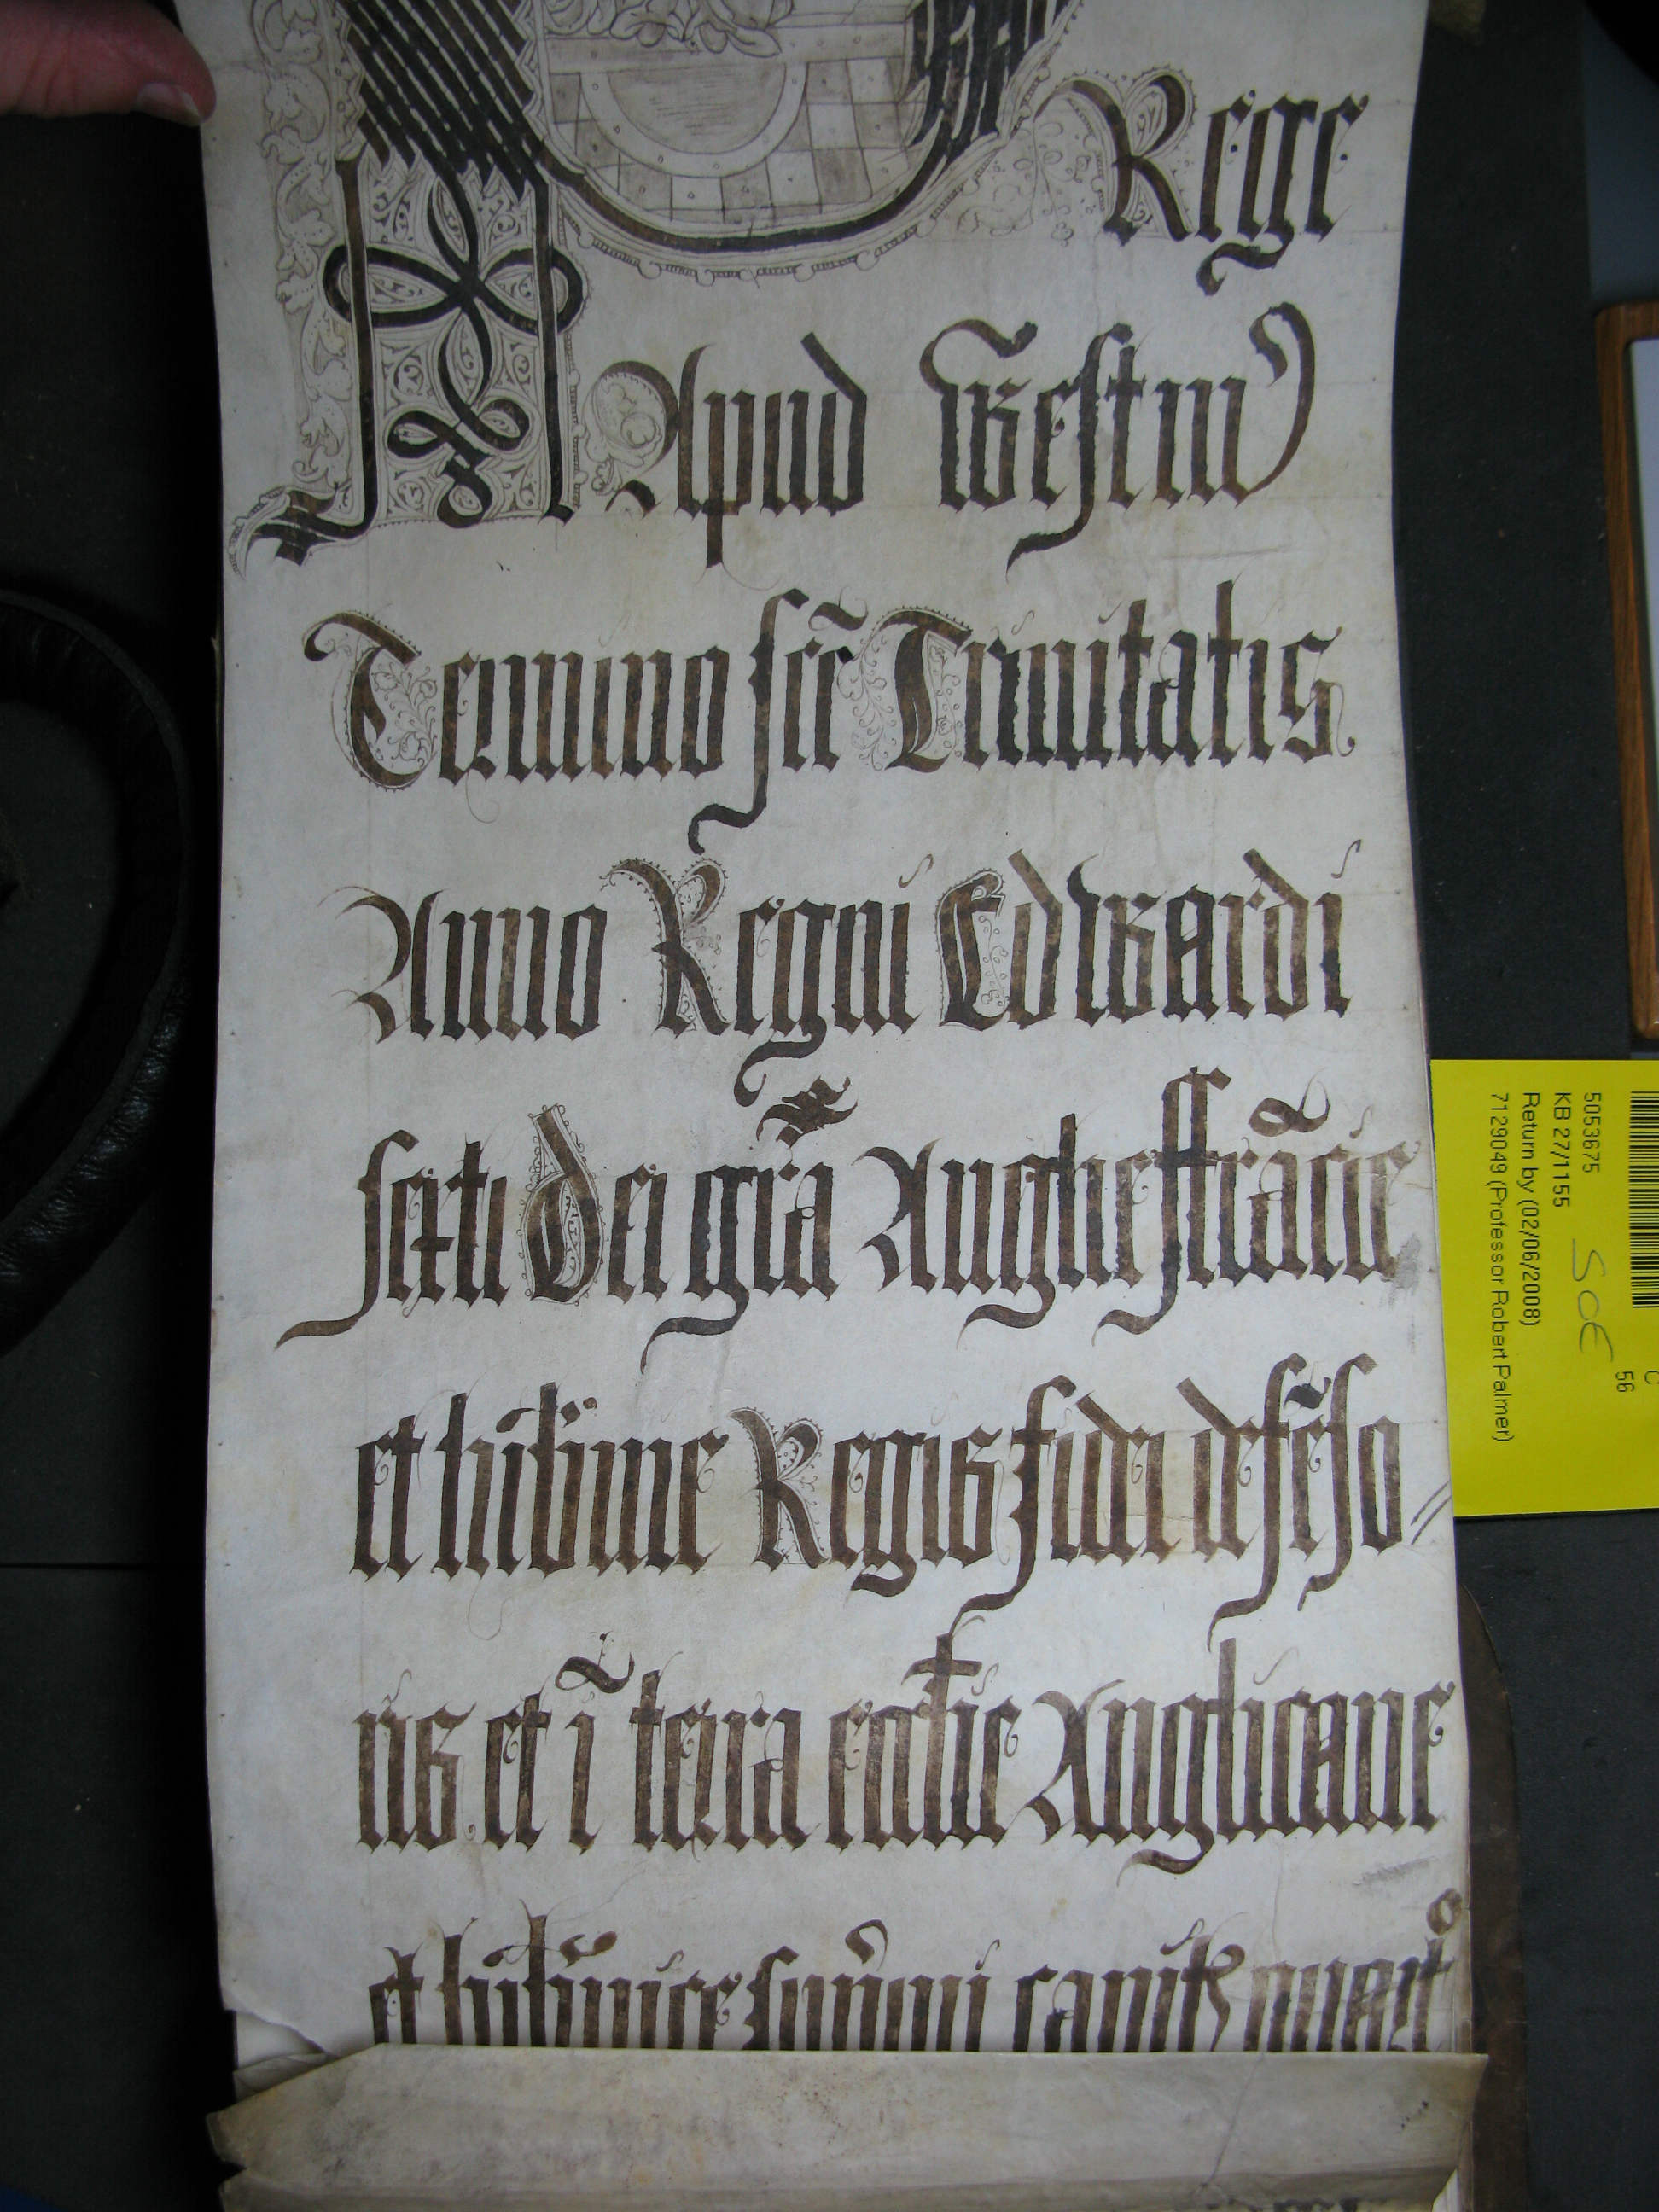 Rege
Apud Westm
Termino scẽ Trinitatis
Anno Regni Edwardi
sexti Dei grã Anglie ffrãcie
et hib̃nie Regis fidei defẽso
ris et ĩ terra ecclie Anglicane
et hib̃nice sup̃mi capitis quart
5053675
KB 27/1155
Return by (02/06/2008)
7129049 (Professor Robert Palmer)
SCE
56